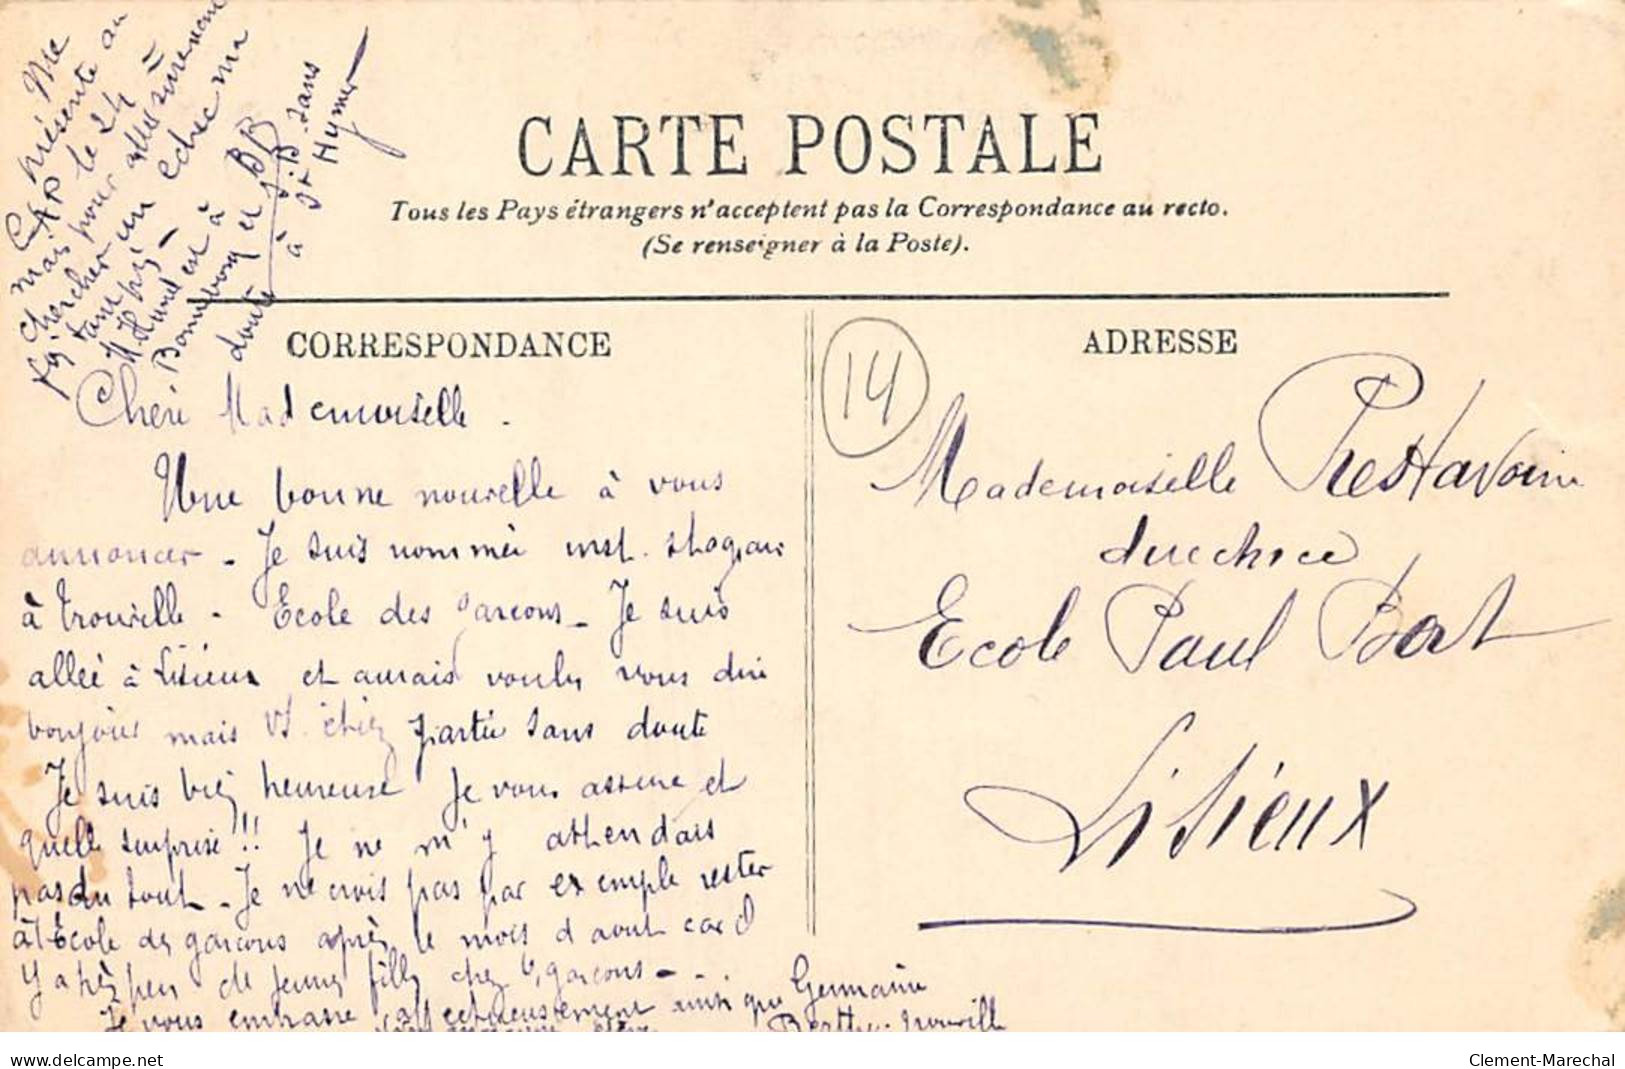 Me
présente au
CAP le 24
mais pour aller sûrement
chercher un échec ma
tanpis -
M. Hamel est à
Bonnebosq et BB
doute à St
Hymer
CARTE POSTALE
Tous les Pays étrangers n'acceptent pas la Correspondance au recto.
(Se renseigner à la Poste).
CORRESPONDANCE
Chère Mademoiselle.
Une bonne nouvelle à vous
annoncer - Je suis nommée inst. stagiaire
à Trouville - Ecole des garçons - Je suis
allée à Lisieux et aurais voulu vous dire
bonjour mais vs. étiez partie sans doute
Je suis bien heureuse je vous assure et
quelle surprise !! Je ne m'y attendais
pas du tout - Je ne crois pas par exemple rester
à l'Ecole de garçons après le mois d'aout car il
y a très peu de jeunes filles chez les garçons - - .
Je vous embrasse affectueusement ainsi que Germaine
Berthe. Trouville
ADRESSE
14
Mademoiselle Prestavoine
directrice
Ecole Paul Bert
Lisieux
www.delcampe.net
Clement-Marechal